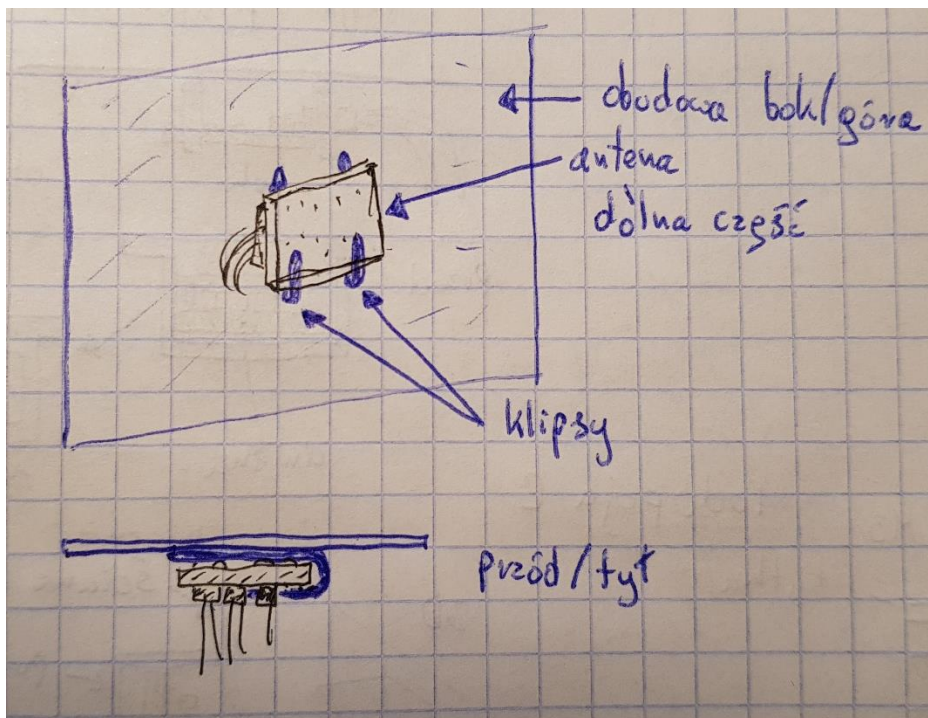 obudowa bok/góra
antena
dolna część
klipsy
przód/tył